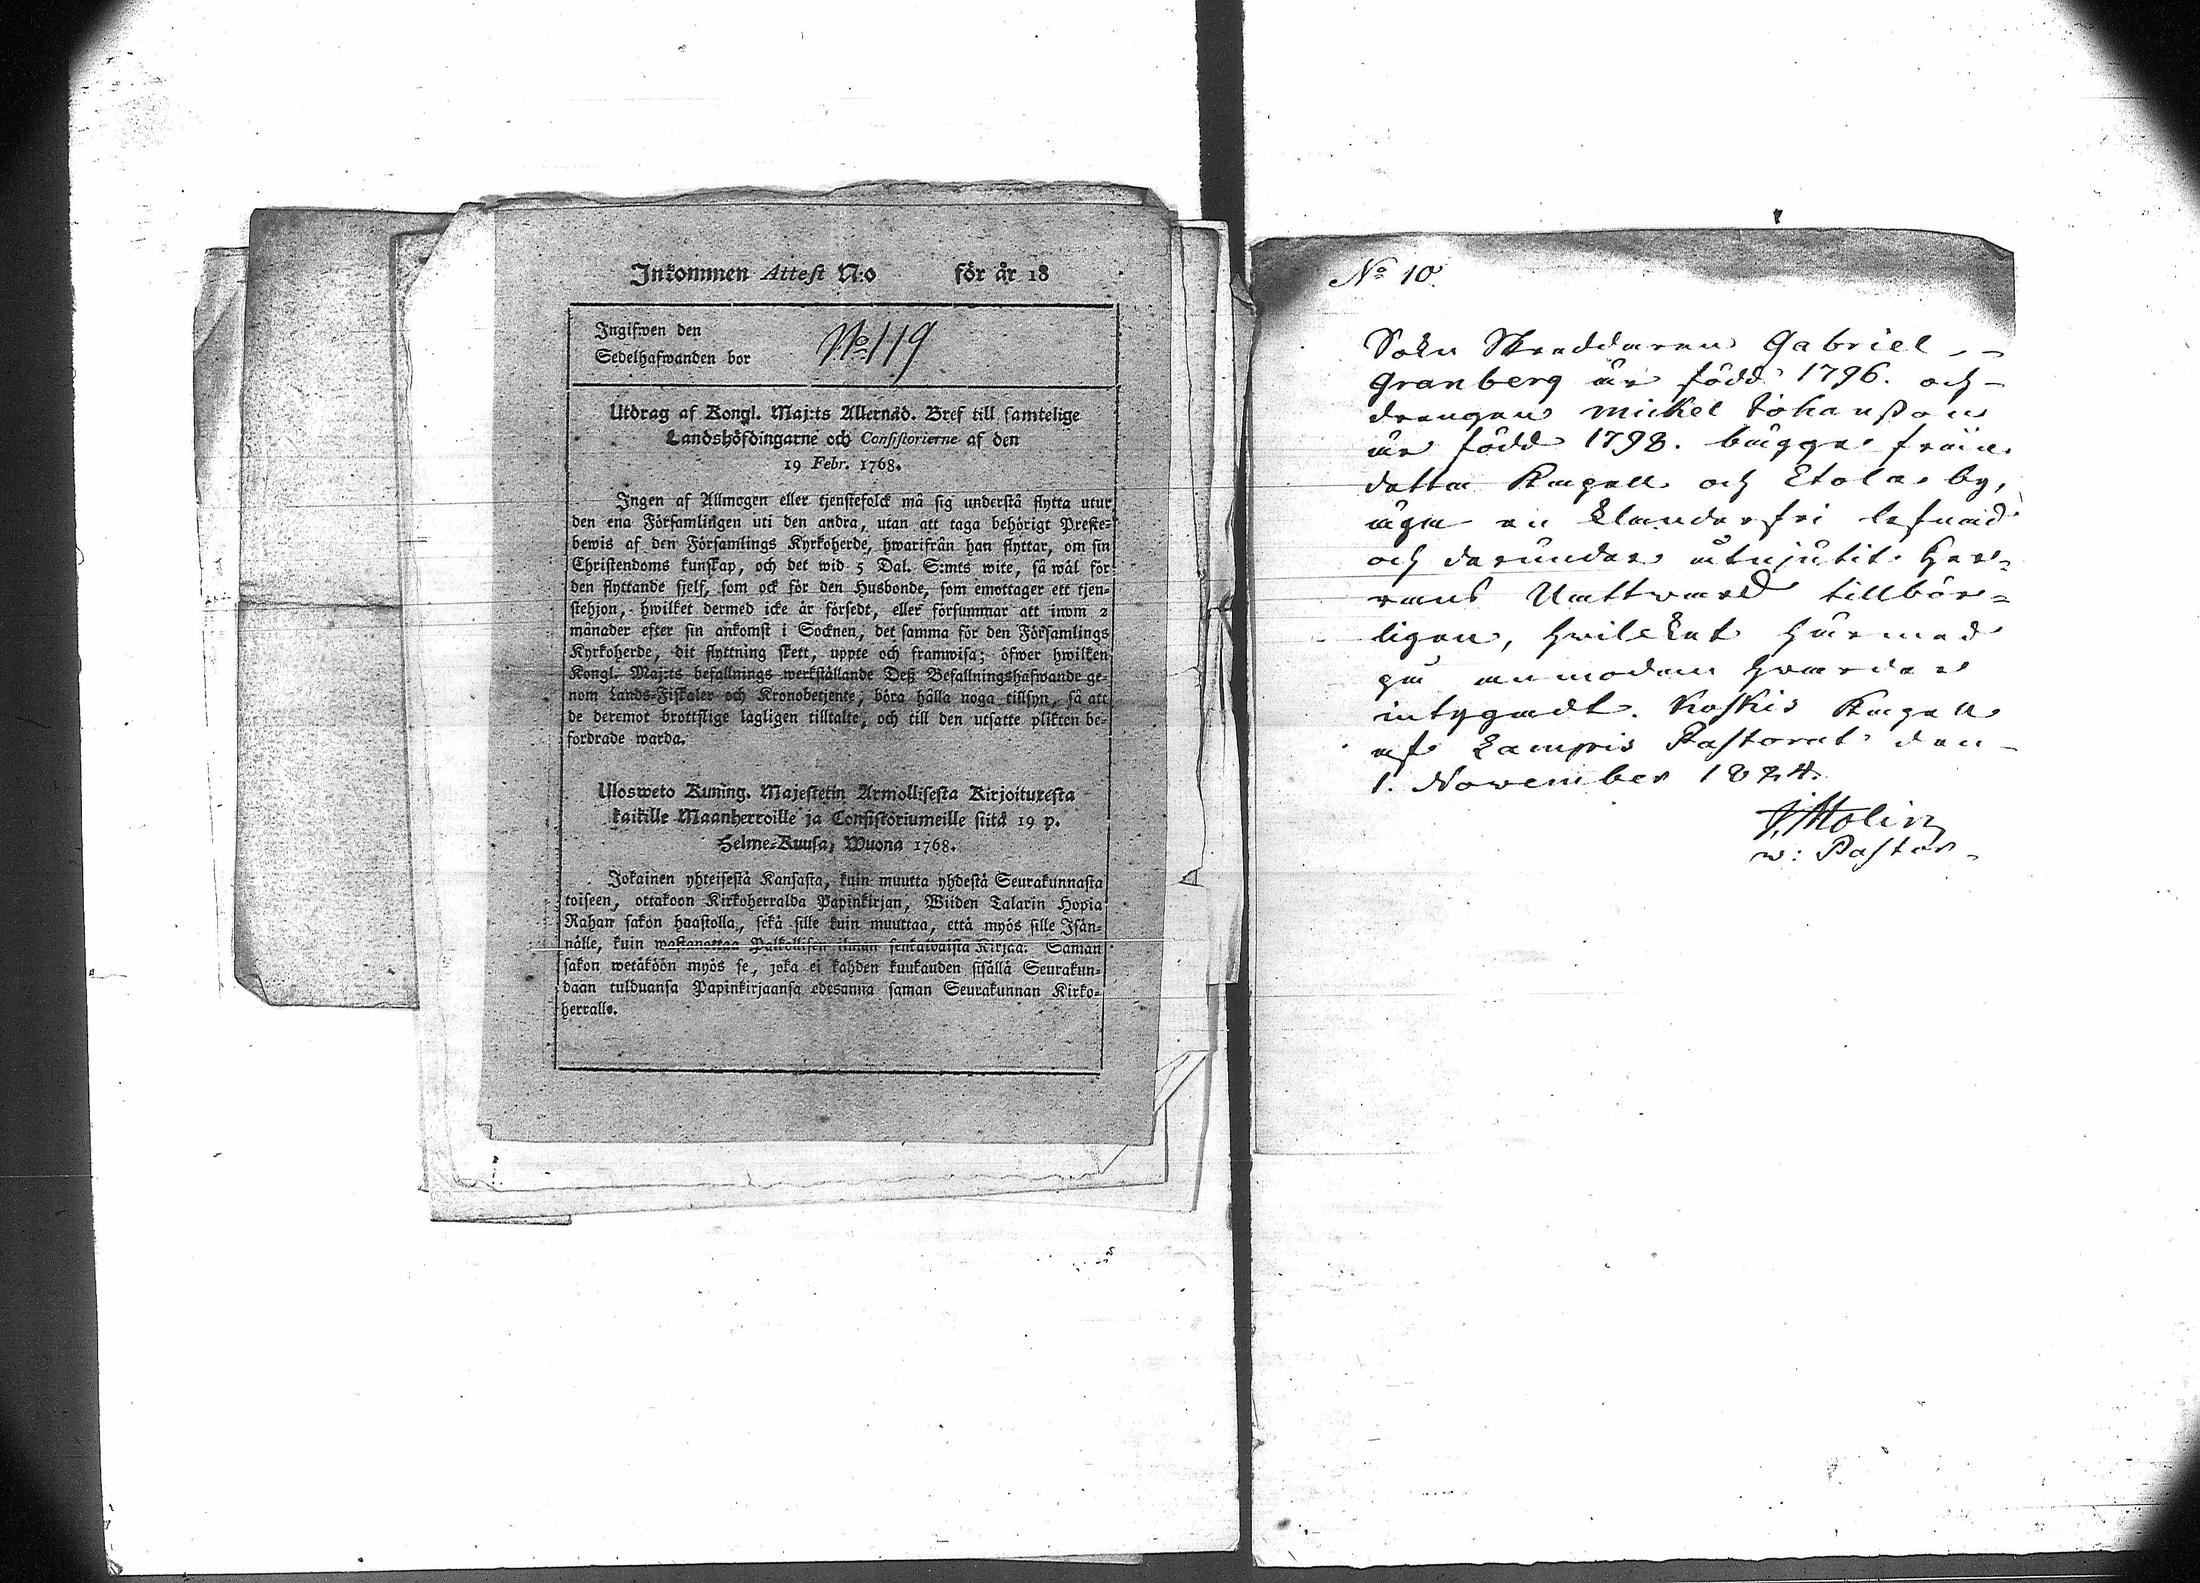 Inkommen Attest N:o för år 18
Ingifwen den
Sedelhafwanden bor
No 119
Utdrag af Kongl. Maj:ts Allernåd. Bref till samtelige
Landshöfdingarne och Consistorierne af den
19 Febr. 1768.
Ingen af Allmogen eller tjenstefolck må sig understå flytta utur
den ena Församlingen uti den andra, utan att taga behörigt Preste-
bewis af den Församlings Kyrkoherde, hwarifrån han flyttar, om sin
Christendoms kunskap, och det wid 5 Dal. S:mts wite, så wäl för
den flyttande sjelf, som ock för den Husbonde, som emottager ett tjen-
stehjon, hwilket dermed icke är försedt, eller försummar att inom 2
månader efter sin ankomst i Socknen, det samma för den Församlings
Kyrkoherde, dit flyttning skett, uppte och framwisa; öfwer hwilken
Kongl. Maj:ts befallnings werkställande Deß Befallningshafwande ge-
nom Lands-Fiskaler och Kronobetjente, böra hålla noga tillsyn, så att
de deremot brottslige lagligen tilltalte, och till den utsatte plikten be-
fordrade warda.
Ulosweto Kuning. Majestetin Armollisesta Kirjoituxesta
kaikille Maanherroille ja Consistoriumeille siitä 19 p.
Helme-Kuusa, Wuona 1768.
Jokainen yhteisestä Kansasta, kuin muutta yhdestä Seurakunnasta
toiseen, ottakoon Kirkoherralda Papinkirjan, Wiiden Talarin Hopia
Rahan sakon haastolla, sekä sille kuin muuttaa, että myös sille Isän-
nälle, kuin wastanottaa Palkollisen ilman senkaltaista Kirjaa. Saman
sakon wetäköön myös se, joka ei kahden kuukauden sisällä Seurakun-
daan tulduansa Papinkirjaansa edesanna saman Seurakunnan Kirko-
herralle.
No 10.
Sokn Skreddaren Gabriel
Granberg är född 1796. och
drengen Michel Johanßon
är född 1798. bägge från
detta Kapell och Etola by,
äga en klanderfri lefnad
och derunder åtnjutit Her-
rans Nattward tillbör-
ligen, hwilcket härmed
på anmodan hwarder
intygadt. Koskis Kapell
af Lampis Pastorat den
1. November 1824.
J. Molin
w: Pastor